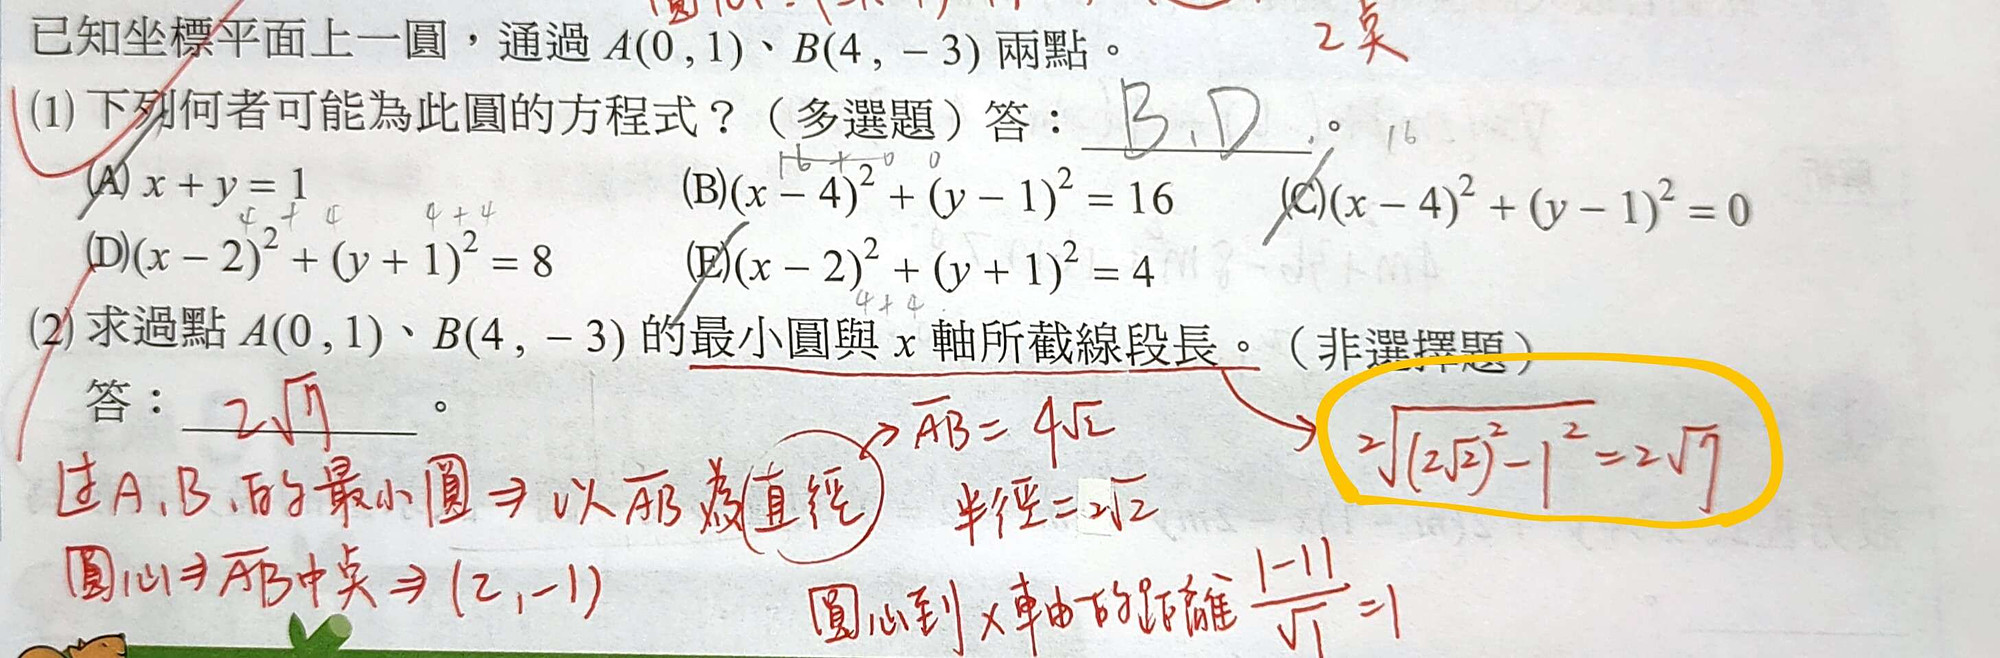 2点
已知坐標平面上一圓，通過 A(0 , 1)、B(4 , －3) 兩點。
(1) 下列何者可能為此圓的方程式？（多選題）答：B、D。
16
16 + 0 0
(A) x + y = 1 (B)(x － 4)² + (y － 1)² = 16 (C)(x － 4)² + (y － 1)² = 0
4 + 4 4 + 4
(D)(x － 2)² + (y + 1)² = 8 (E)(x － 2)² + (y + 1)² = 4
4 + 4
(2) 求過點 A(0 , 1)、B(4 , －3) 的最小圓與 x 軸所截線段長。（非選擇題）
答：2√7。
AB = 4√2
2√((2√2)² - 1²) = 2√7
过A、B、的最小圓 ⇒ 以AB為直徑
半徑 = 2√2
圓心 ⇒ AB中点 ⇒ (2, -1)
圓心到x軸的距離 |-1|/√1 = 1